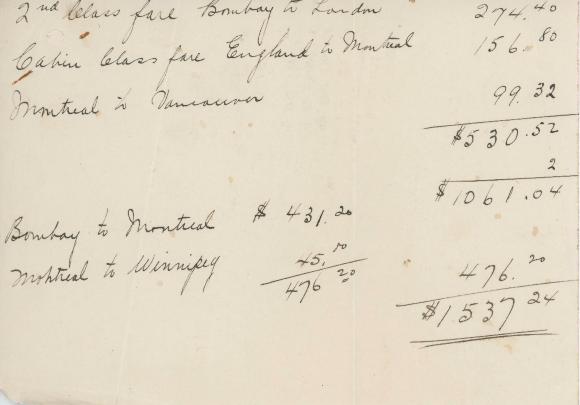 2nd Class fare Bombay to London 274.40
Cabin Class fare England to Montreal 156.80
Montreal to Vancouver 99.32
$530.52
2
$1061.04
Bombay to Montreal $ 431.20
Montreal to Winnipeg 45.00
476.20 476.20
$1537.24